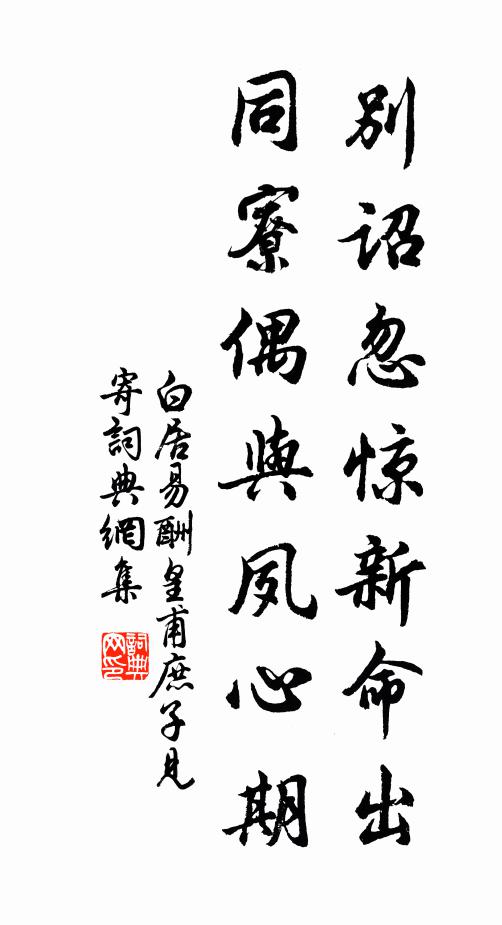 别诏忽惊新命出
同寮偶與夙心期
白居易酬皇甫庶子見
寄詞典網集
詞典
网印